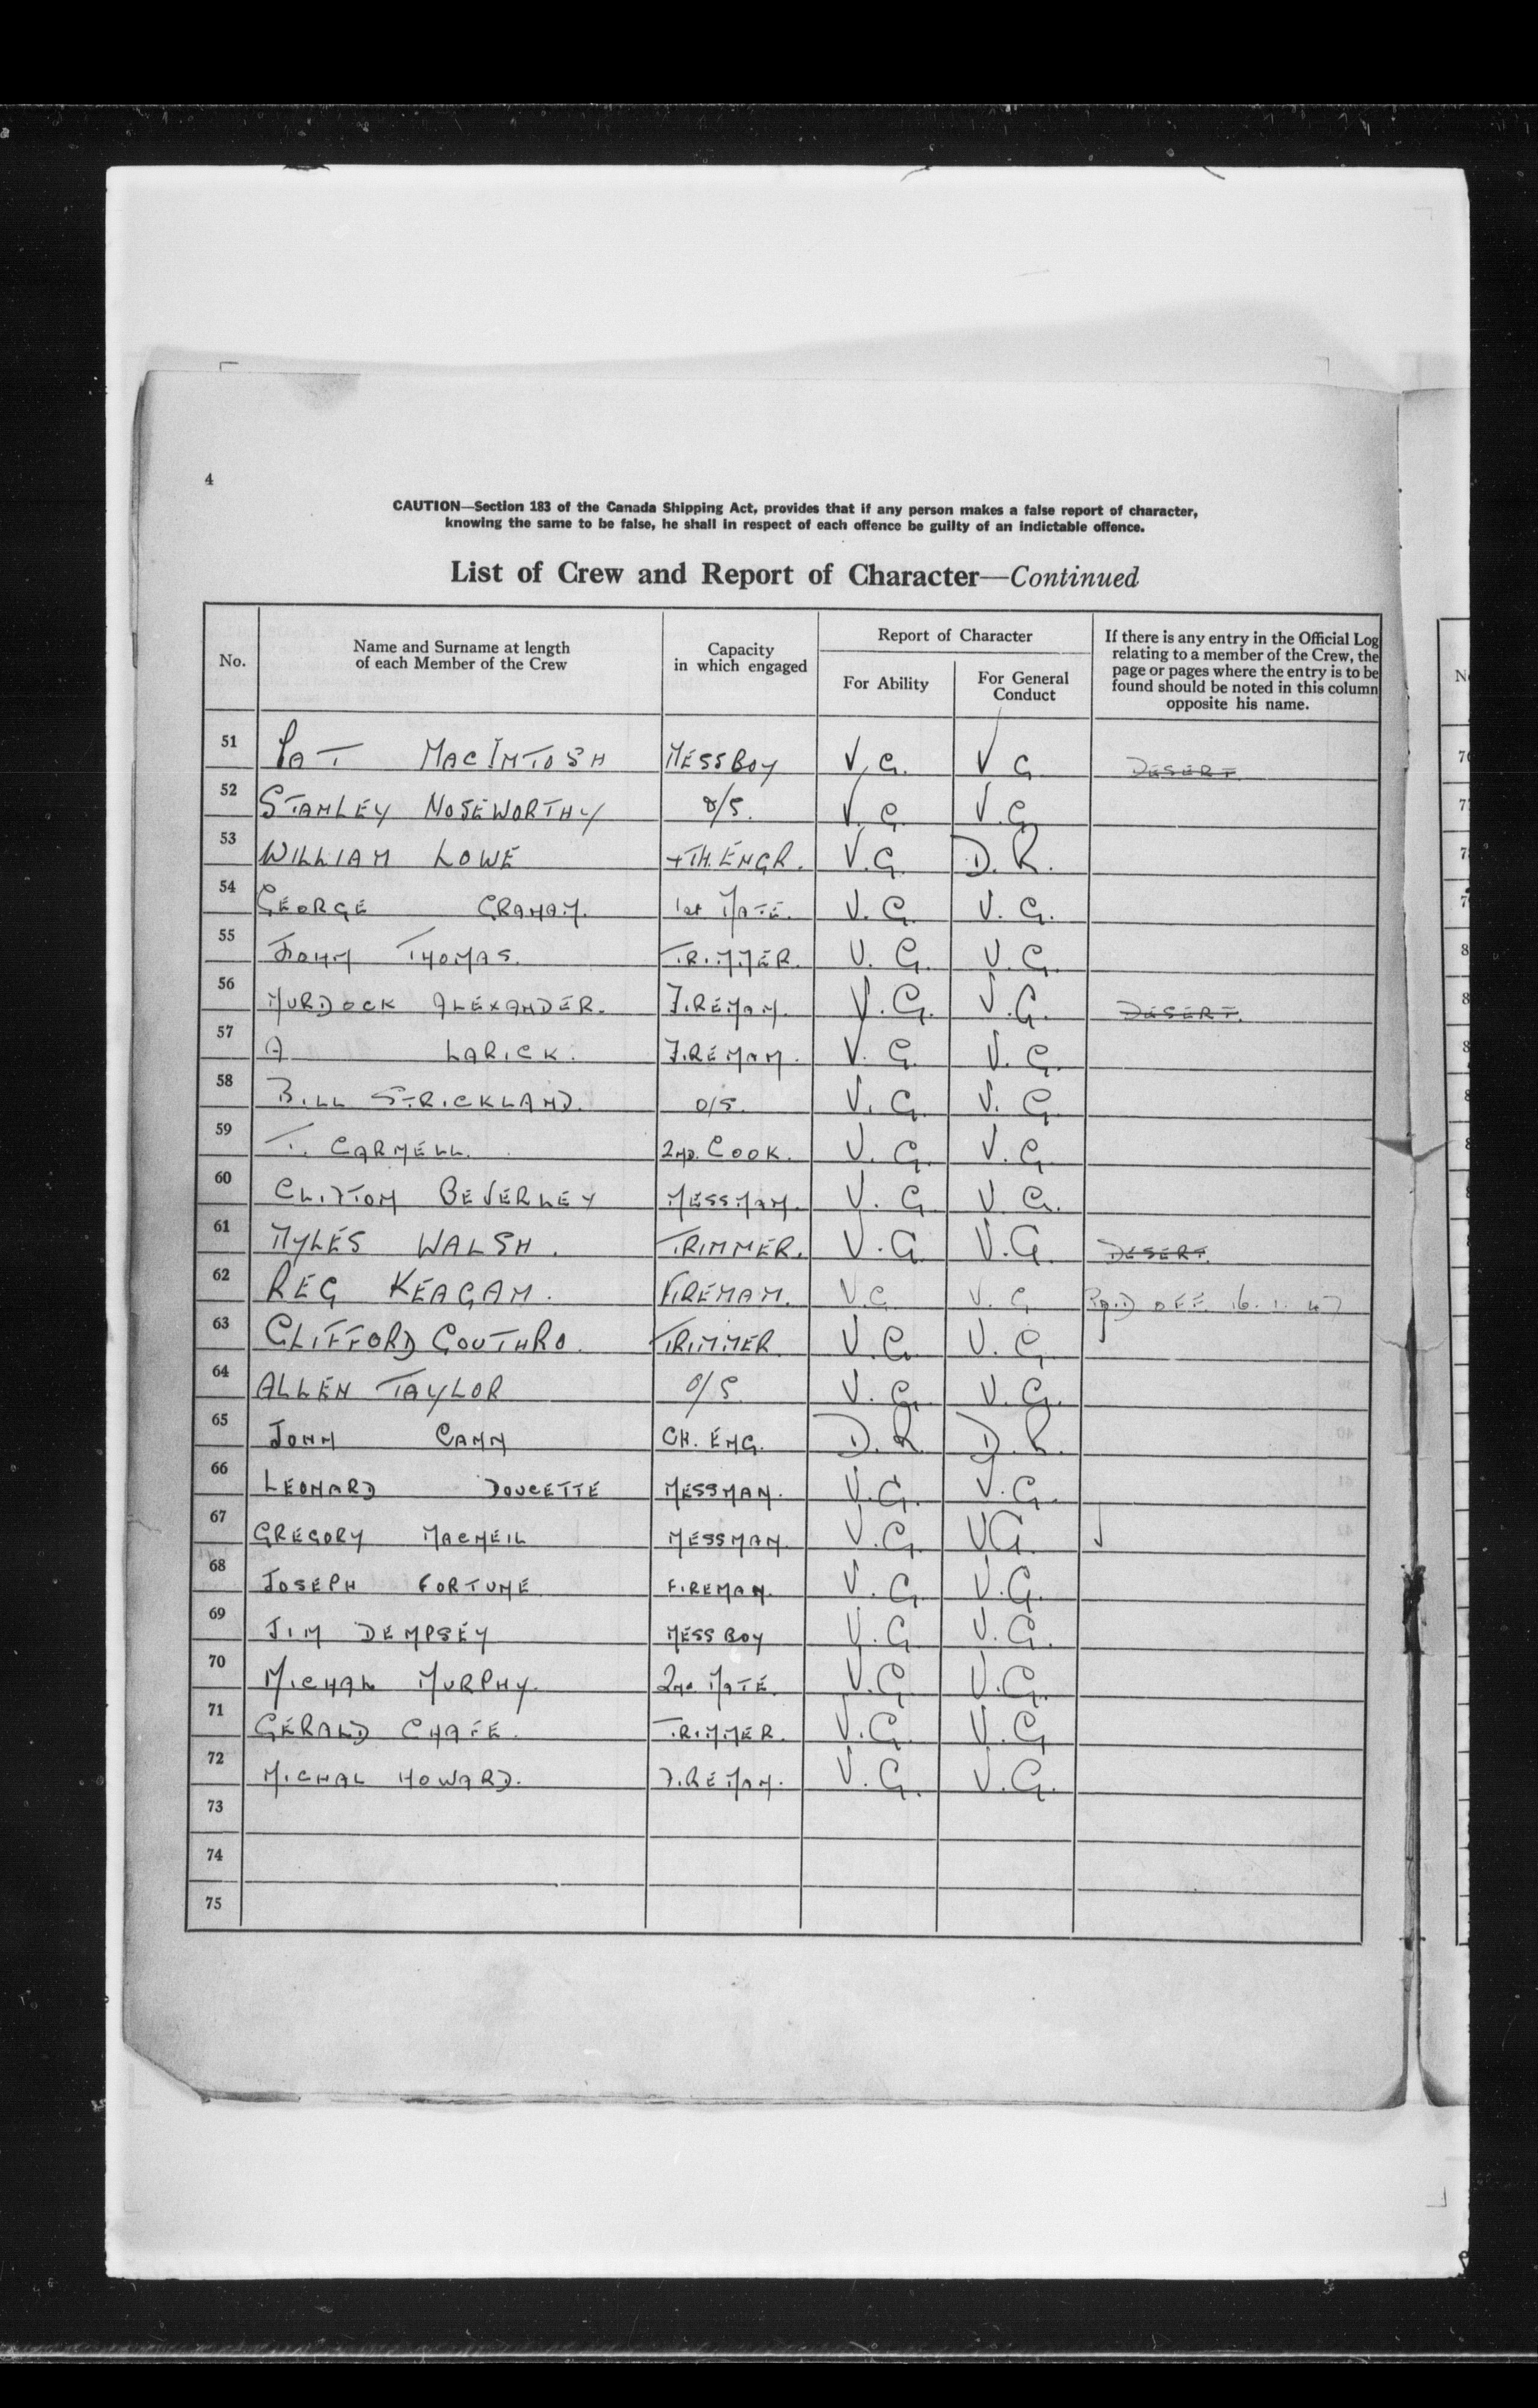 4
CAUTION—Section 183 of the Canada Shipping Act, provides that if any person makes a false report of character,
knowing the same to be false, he shall in respect of each offence be guilty of an indictable offence.
List of Crew and Report of Character—Continued
No. Name and Surname at length of each Member of the Crew Capacity in which engaged Report of Character For Ability For General Conduct If there is any entry in the Official Log relating to a member of the Crew, the page or pages where the entry is to be found should be noted in this column opposite his name.
51 PAT MACINTOSH MESSBOY V.G. V G DESERT
52 STANLEY NOSEWORTHY O/S. V. G. V.G.
53 WILLIAM LOWE 4TH. ENGR. V.G. D.R.
54 GEORGE GRAHAM. 1st MATE. V. G. V. G.
55 JOHN THOMAS. TRIMMER. V. G. V.G.
56 MURDOCK ALEXANDER. FIREMAN. V.G. V.G. DESERT.
57 A LARICK. FIREMAN. V. G. V. G.
58 BILL STRICKLAND. O/S. V. G. V. G.
59 T. CARNELL. 2ND. COOK. V. G. V. G
60 CLIFTON BEVERLEY MESSMAN. V. G V G.
61 MYLES WALSH. TRIMMER. V.G V.G. DESERT.
62 REG KEAGAN. FIREMAN. V.G. V. G PAID OFF. 16. 1. 47
63 CLIFFORD GOUTHRO. TRIMMER V.G. V. G
64 ALLEN TAYLOR O/S. V. G. V. G.
65 JOHN CANN CH. ENG. D.R. D.R.
66 LEONARD DOUCETTE MESSMAN. V.G. V.G.
67 GREGORY MACNEIL MESSMAN. V.G. VG.
68 JOSEPH FORTUNE FIREMAN. V.G. V.G.
69 JIM DEMPSEY MESS BOY V.G V.G.
70 MICHAL MURPHY. 2ND. MATE. V.G V.G.
71 GERALD CHAFE. TRIMMER. V.G. V.G
72 MICHAL HOWARD. FIREMAN. V.G. V.G.
73
74
75